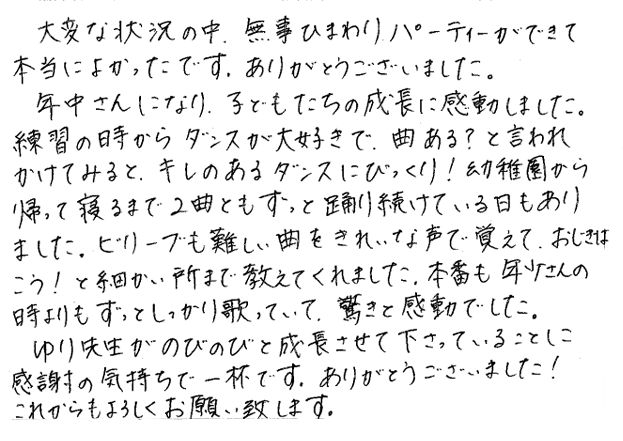 大変な状況の中、無事ひまわりパーティーができて
本当によかったです。ありがとうございました。
年中さんになり、子どもたちの成長に感動しました。
練習の時からダンスが大好きで、曲ある？と言われ
かけてみると、キレのあるダンスにびっくり！幼稚園から
帰って寝るまで2曲ともずっと踊り続けている日もあり
ました。ビリーブも難しい曲をきれいな声で覚えて、おじぎは
こう！と細かい所まで教えてくれました。本番も年少さんの
時よりもずっとしっかり歌っていて、驚きと感動でした。
ゆり先生がのびのびと成長させて下さっていることに
感謝の気持ちで一杯です。ありがとうございました！
これからもよろしくお願い致します。